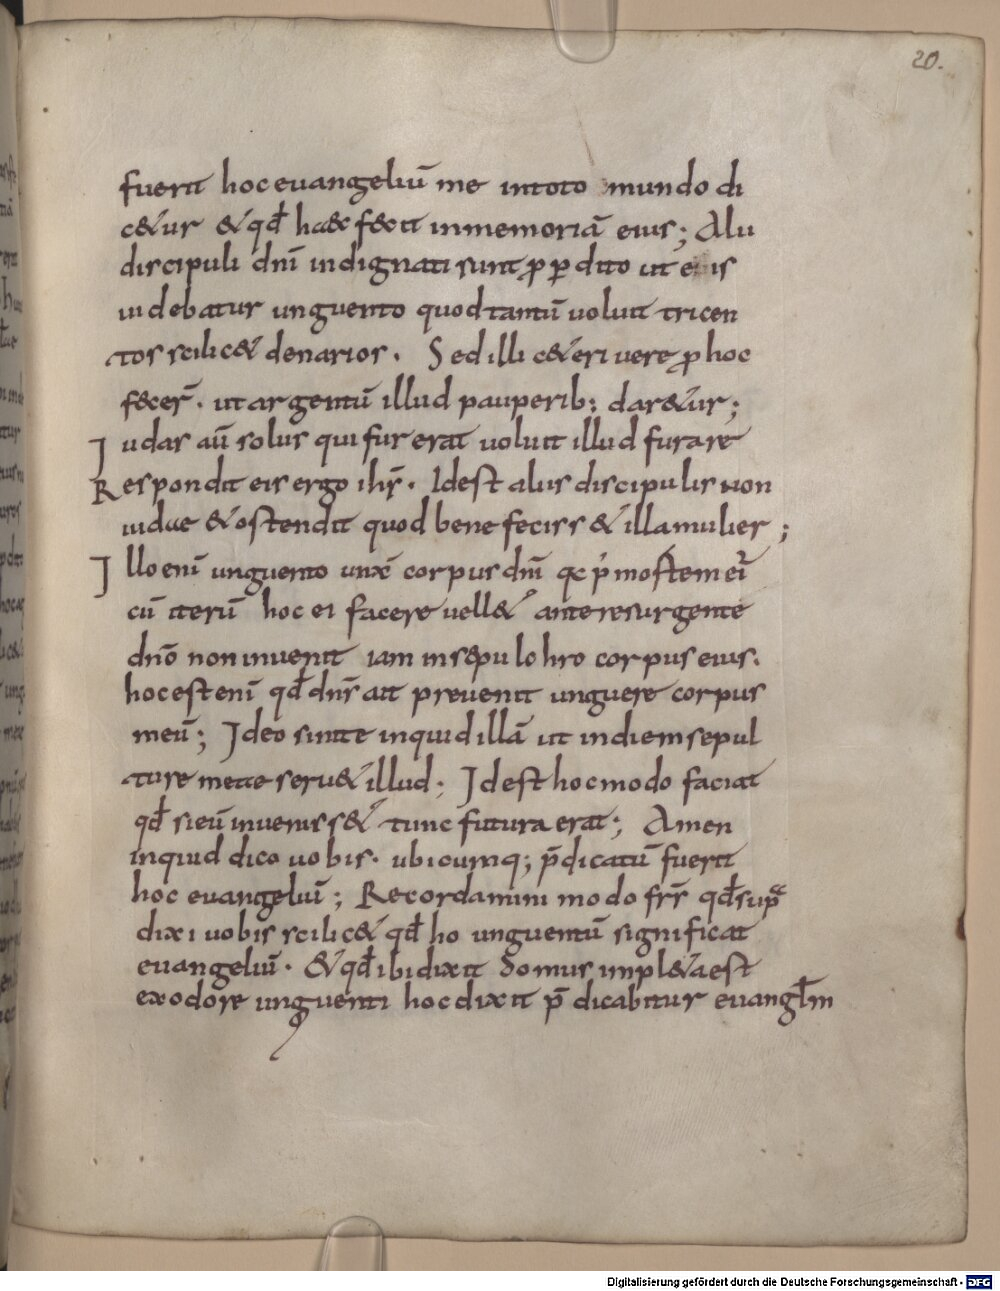 20.
fuerit hoc euangeliū me intoto mundo di
c&ur &qđ haec fecit inmemoriā eius; Alii
discipuli dnī indignati sunt ꝓ ꝑdito ut eis
uidebatur unguento quod tantū uoluit tricen
tos scilic& denarios. Sed illi c&eri uere ꝓ hoc
fecer̄. ut argentū illud pauperib; dar&ur;
Iudas aū solus qui fur erat uoluit illud furare
Respondit eis ergo ihs̄. Idest alus discipulis non
iudae & ostendit quod bene feciss& illa mulier;
Illo enī unguento unx̄ corpus dnī post mortem ei
cū iterū hoc ei facere uell& ante resurgente
dnō non inuenit iam insepulchro corpus eius.
hoc est enī qđ dns̄ ait preuenit unguere corpus
meū; Ideo sinite inquid illā ut indiem sepul
ture mee seru& illud; Idest hoc modo faciat
qđ si eū inueniss& tunc futura erat; Amen
inquid dico uobis. ubicumq; p̄dicatū fuerit
hoc euangeliū; Recordamini modo frs̄ qđ supra
dixi uobis scilic& qđ ho unguentū significat
euangeliū. & qđ ibi dixit Domus impl&a est
exodore unguenti hoc dixit p̄dicabitur euangłm
Digitalisierung gefördert durch die Deutsche Forschungsgemeinschaft - DFG